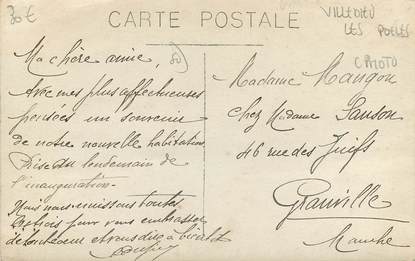 30 €
CARTE POSTALE
VILLEDIEU
LES POELES
CPHOTO
50
Ma chère amie,
Avec mes plus affectueuses
pensées un souvenir
de notre nouvelle habitation
Prise du lendemain de
l'inauguration.
Mais nous unissons toutes
pour vous embrasser
et vous dis à bientôt
Madame Mangon
chez Madame Sanson
46 rue des Juifs
Granville
Manche